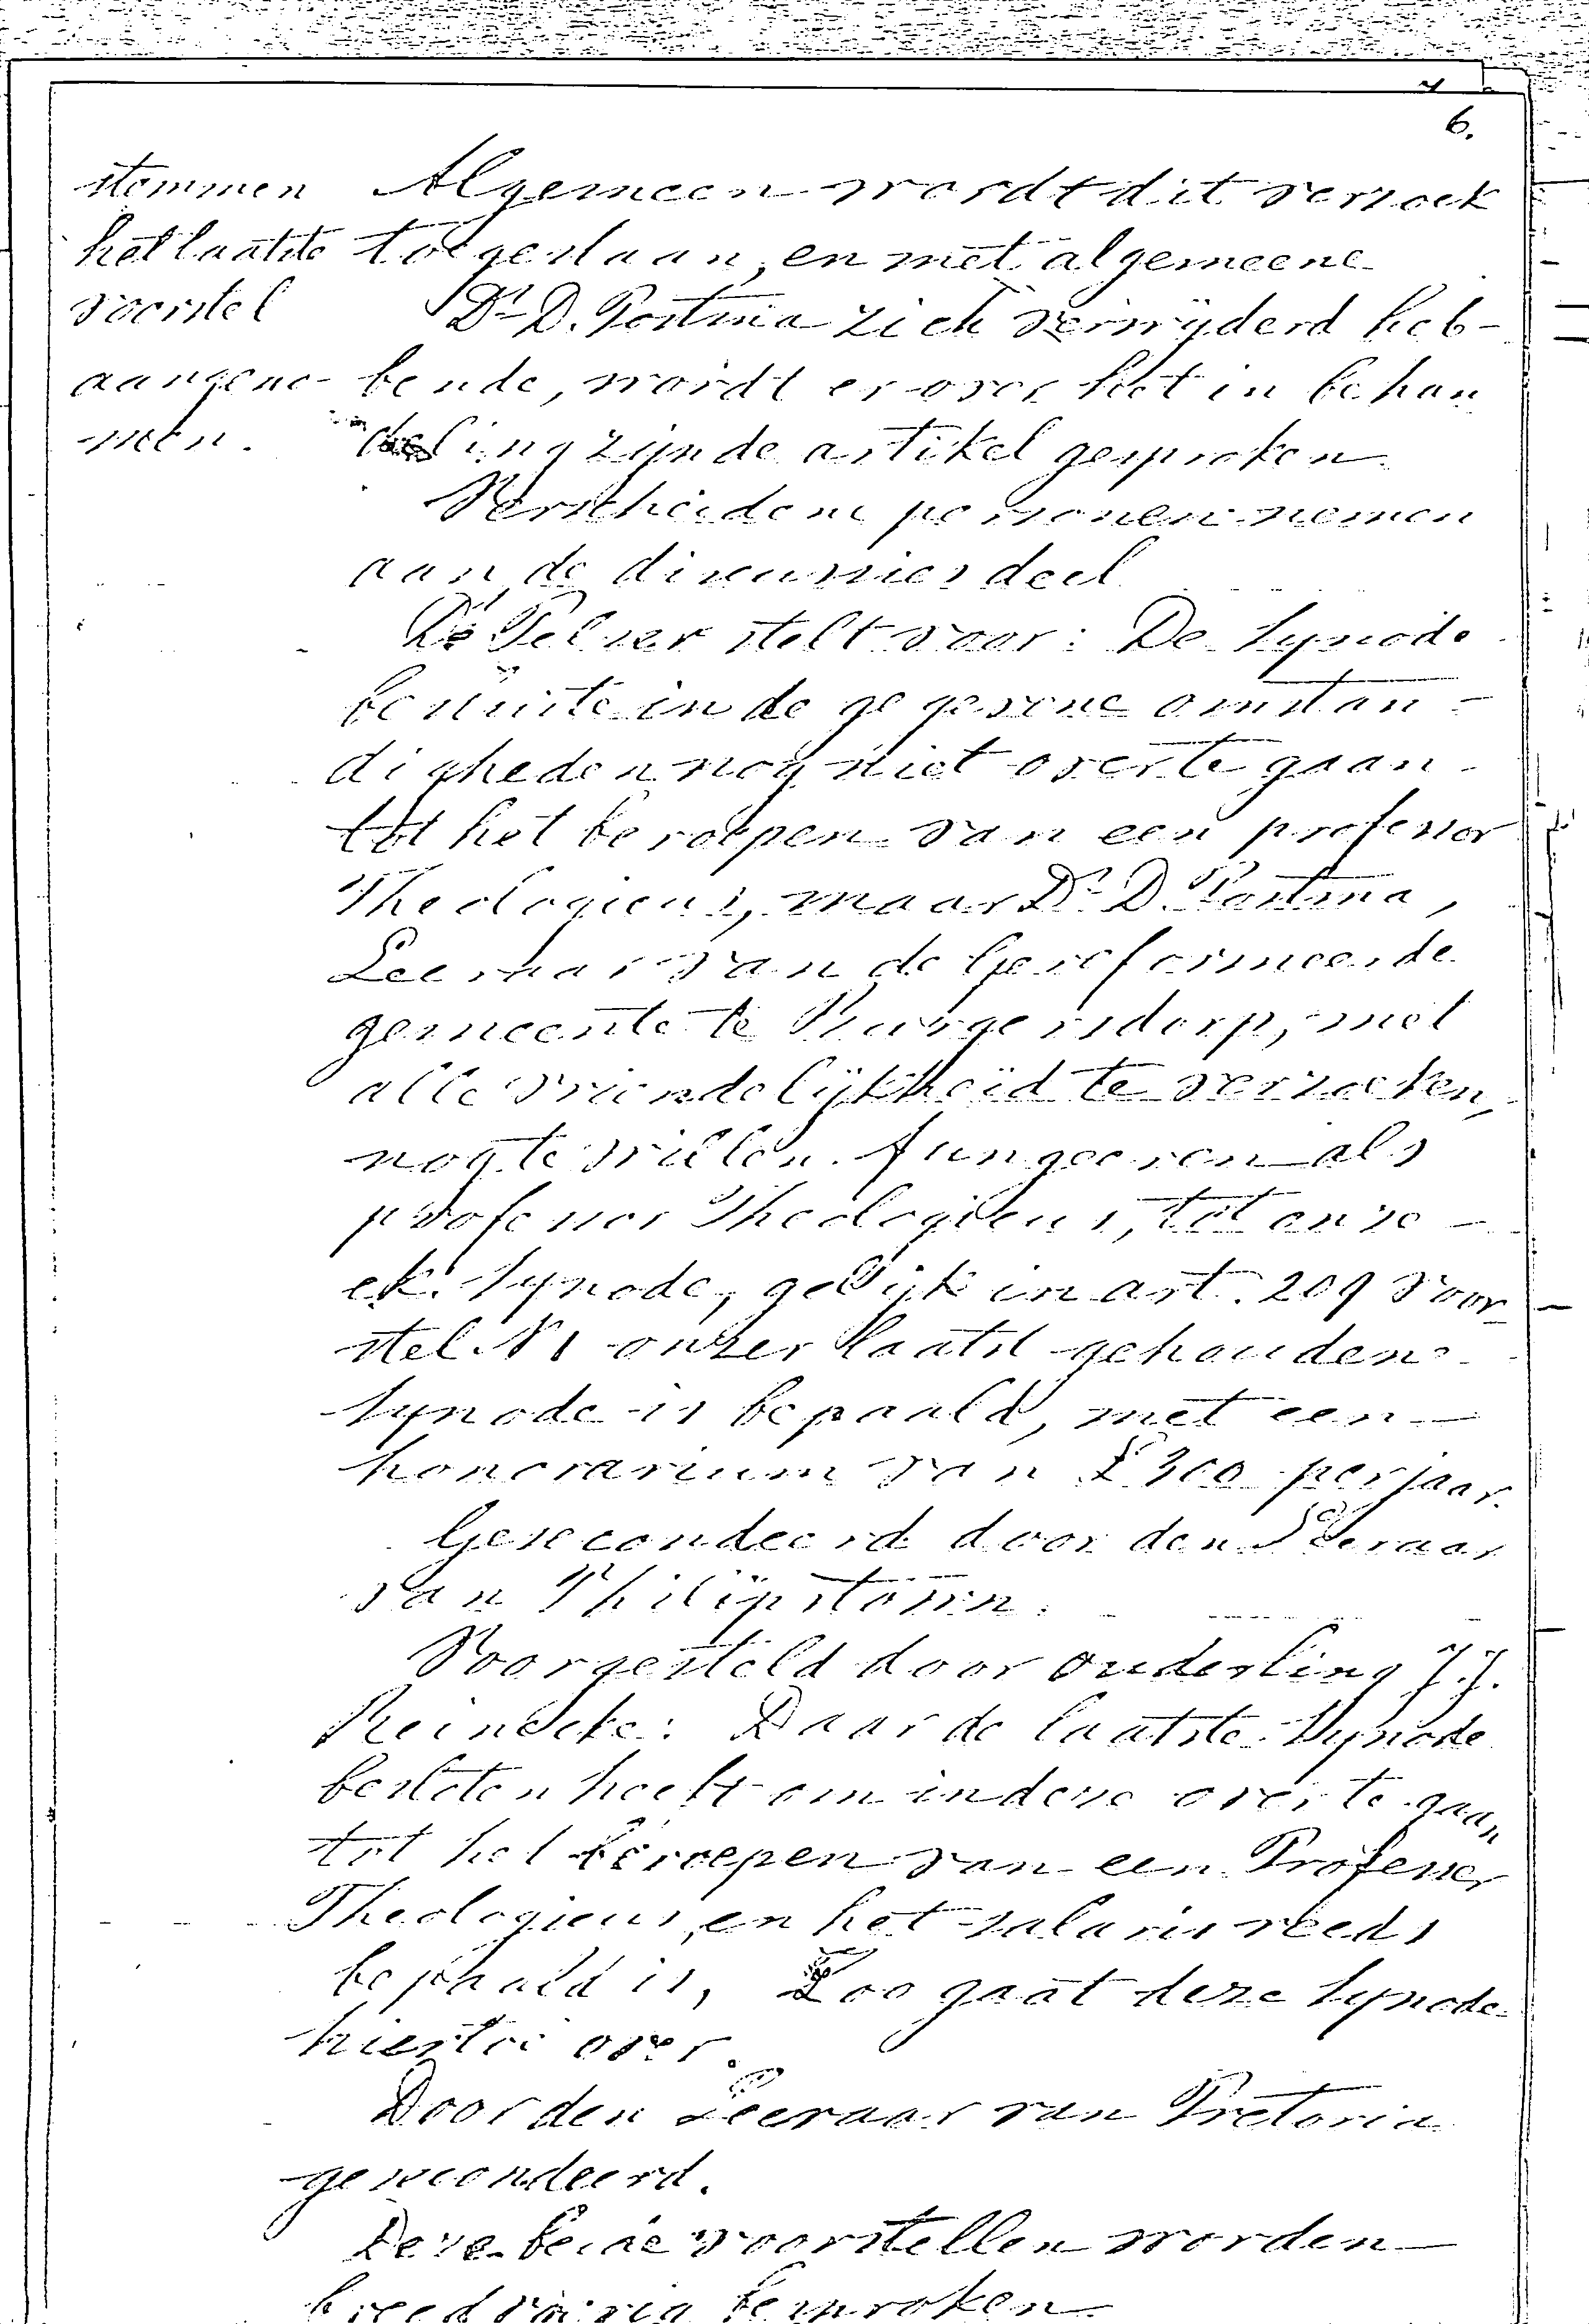 6.
stemmen
het laatste
voorstel
aangeno-
men.
Algemeen wordt dit verzoek
toegestaan, en met algemeene
Ds D. Postma zich verwijderd heb-
bende, wordt er over het in behan
deling zijnde artikel gesproken.
Verscheidene personen nemen
aan de discussies deel.
Ds Pelser stelt voor: De Synode
besluite in de gegevene omstan-
digheden nog niet over te gaan
tot het beroepen van een professor
Theologicus, maar Ds D. Postma,
Leeraar van de Gereformeerde
gemeente te Burgersdorp, met
alle vriendelijkheid te verzoeken,
nog te willen fungeeren als
professor Theologicus, tot onze
ek. Synode, gelijk in art. 209 voor-
stel N1 onzer laatst gehoudene
Synode is bepaald, met een
honorarium van £300 per jaar.
Gesecondeerd door den Leeraar
van Philipstown.
Voorgesteld door ouderling J.J.
Reinecke: Daar de laatste Synode
besloten heeft om in deze over te gaan
tot het beroepen van een Professor
Theologicus, en het salaris reeds
bepaald is, Zoo gaat deze Synode
hiertoe over.
Door den Leeraar van Pretoria
gesecondeerd.
Deze beide voorstellen worden
breedvoerig besproken.